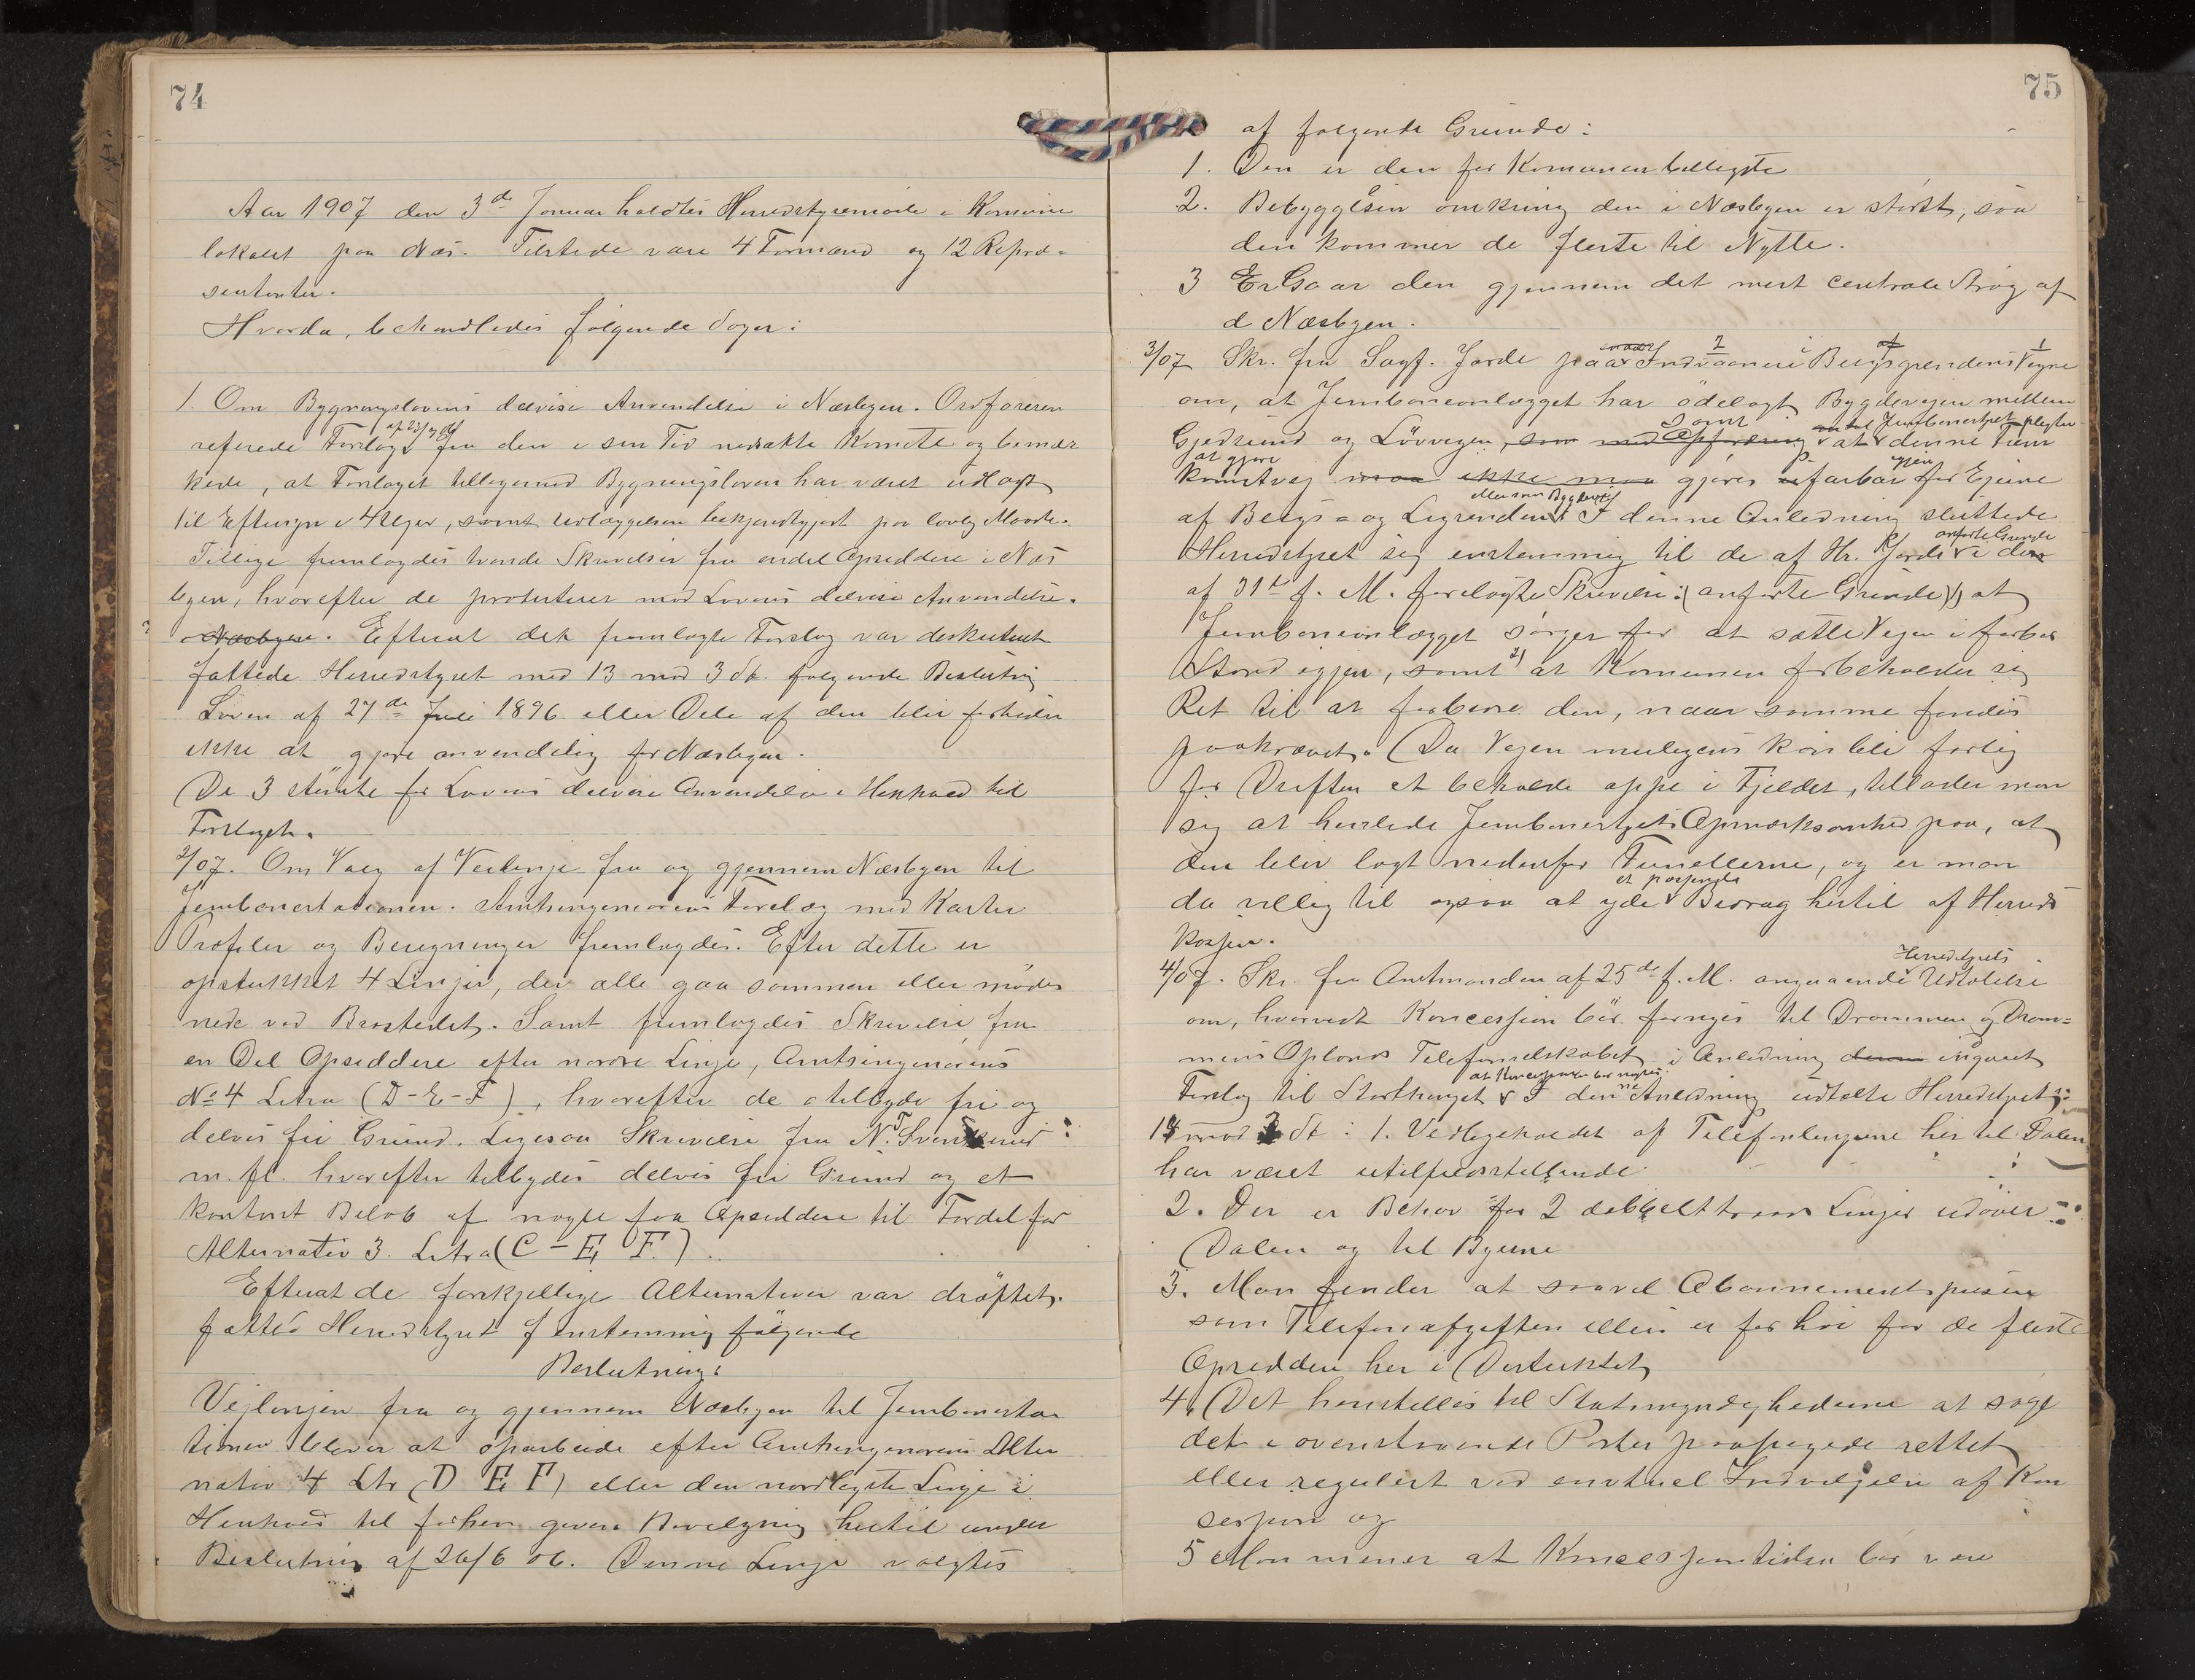 74
Aar 1907 den 3de Januar holdtes Herredstyremöde i Komune
lokalet paa Næs. Tilstede vare 4 Formænd og 12 Repræ-
sentanter.
Hvorda, behandledes fölgende Sager:
1. Om Bygningslovens delvise Anvendelse i Næsbyen. Ordföreren
refererede Forslag af 23/7 06 fra den i sin Tid nedsatte Komite og bemær
kede, at Forslaget tillegemed Bygningsloven har været udlagt
til Eftersyn i 4 Uger, samt Udlæggelsen bekjendtgjort paa lovlig Maade.
Tillige fremlagdes tvende Skrivelser fra endel Opsiddere i Næs
byen, hvorefter de protesterer mod Lovens delvise Anvendelse.
i Næsbyen. Efterat det fremlagte Forslag var diskuteret
fattede Herredstyret med 13 mod 3 St. fölgende Beslutning
Loven af 27de Juli 1896 eller Dele af den blir forheden
ikke at gjöre anvendelig for Næsbyen.
De 3 stemte for Lovens delvise Anvendelse i Henhold til
Forslaget.
2/07. Om Valg af Veilinje fra og gjennem Næsbyen til
Jernbanestationen. Amtsingeniörens Forelæg med Karter
Profiler og Beregninger fremlagdes. Efter dette er
opstukket 4 Linjer, der alle gaa sammen eller mödes
nede ved Brostedet. Samt fremlagdes Skrivelse fra
en Del Opsiddere efter nordre Linje, Amtsingeniörens
No 4 Litra (D-E-F), hvorefter de tilbyde fri og
delvis fri Grund. Ligesaa Skrivelse fra N. T. Svenkerud
m. fl. hvorefter tilbydes delvis fri Grund og et
kontant Belöb af nogle faa Opsiddere til Fordel for
Alternativ 3. Litra (C - E, F.)
Efterat de forskjellige Alternativer var dröftet.
fattes Herredstyret enstemmig fölgende
Beslutning:
Vejlinjen fra og gjennem Næsbyen til Jernbanesta
tionen bliver at oparbeide efter Amtsingeniörens Alter
nativ 4 Ltr (D E F) eller den nordligste Linje i
Henhold til forhen given Bevilgning hertil under
Beslutning af 26/6 06. Denne Linje valgtes
75
af fölgende Grunde:
1. Den er den for Komunen billigste
2. Bebyggelsen omkring den i Næsbyen er störst, saa
den kommer de fleste til Nytte.
3 Er Gaar den gjennem det mest centrale Strög af
d Næsbyen.
3/07 Skr. fra Sagf. Jorde paa Indvaanere i Bergsgrendens Vegne
om, at Jernbaneanlægget har ödelagt Bygdevejen mellem
Gjedsund og Lövvegen, som med Opförsing samt at Jernbanestyret pligter
at gjöre
Kunstvej maa ikke maa gjöres farbar igjen for Ejerne
af Bergs- og Ligrenden eller som Bygdevej I denne Anledning sluttede
Herredstyret sig enstemmig til de af Hr. Jorde anförte Grunde i den
af 31te f. M. forelagte Skrivelse (anförte Grunde) 1) at
Jernbaneanlægget sörger for at sætte Vejen i farbar
Stand igjen, samt 2) at Komunen forbeholder sig
Ret til at forbedre den, naar samme findes
paakrævet. (Da Vejen muligens kan bli farlig
for Driften at beholde oppe i Fjeldet, tillader man
sig at henlede Jernbanestyrets Opmærksomhed paa, at
den blir lagt nedenfor Tunellerne, og er man
da villig til ogsaa at yde et passende Bidrag hertil af Herreds
kassen.
4/07. Skr. fra Amtmanden af 25de f. M. angaaende Herredstyrets Udtalelse
om, hvorvidt Koncession bör fornyes til Drammen og Dram-
mens Oplands Telefonselskabet i Anledning denne indgaaet
Forslag til Storthinget at Koncessionen bör nægtes. I den Anledning udtalte Herredstyret
14 mod 2 St: 1. Vedligeholdet af Telefonlinjerne her til Dalen
har været utilfredsstillende.
2. Der er Behov for 2 dobbelttraads Linjer udover
Dalen og til Byerne
3. Man finder at saavel Abonnementsprisen
som Telefonafgiften ellers er for höi for de fleste
Opsiddere her i Distriktet
4. Det henstilles til Statsmyndighederne at söge
det i ovenstaaende Poster paapegede rettet
eller reguleret ved eventuel Indvilgelse af Kon
sesjon og
5 Man mener at Koncessjonstiden bör være